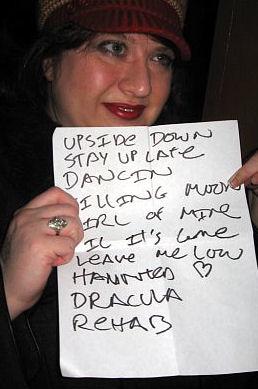 UPSIDE DOWN
STAY UP LATE
DANCIN
ILLING MOON
IRL OF MINE
IL IT'S GONE
LEAVE ME LOW
HAUNTED ♡
DRACULA
REHAB